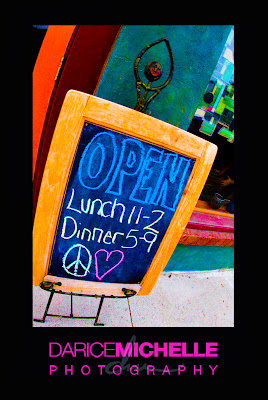 OPEN
Lunch 11-2
Dinner 5-9
DARICEMICHELLE
PHOTOGRAPHY